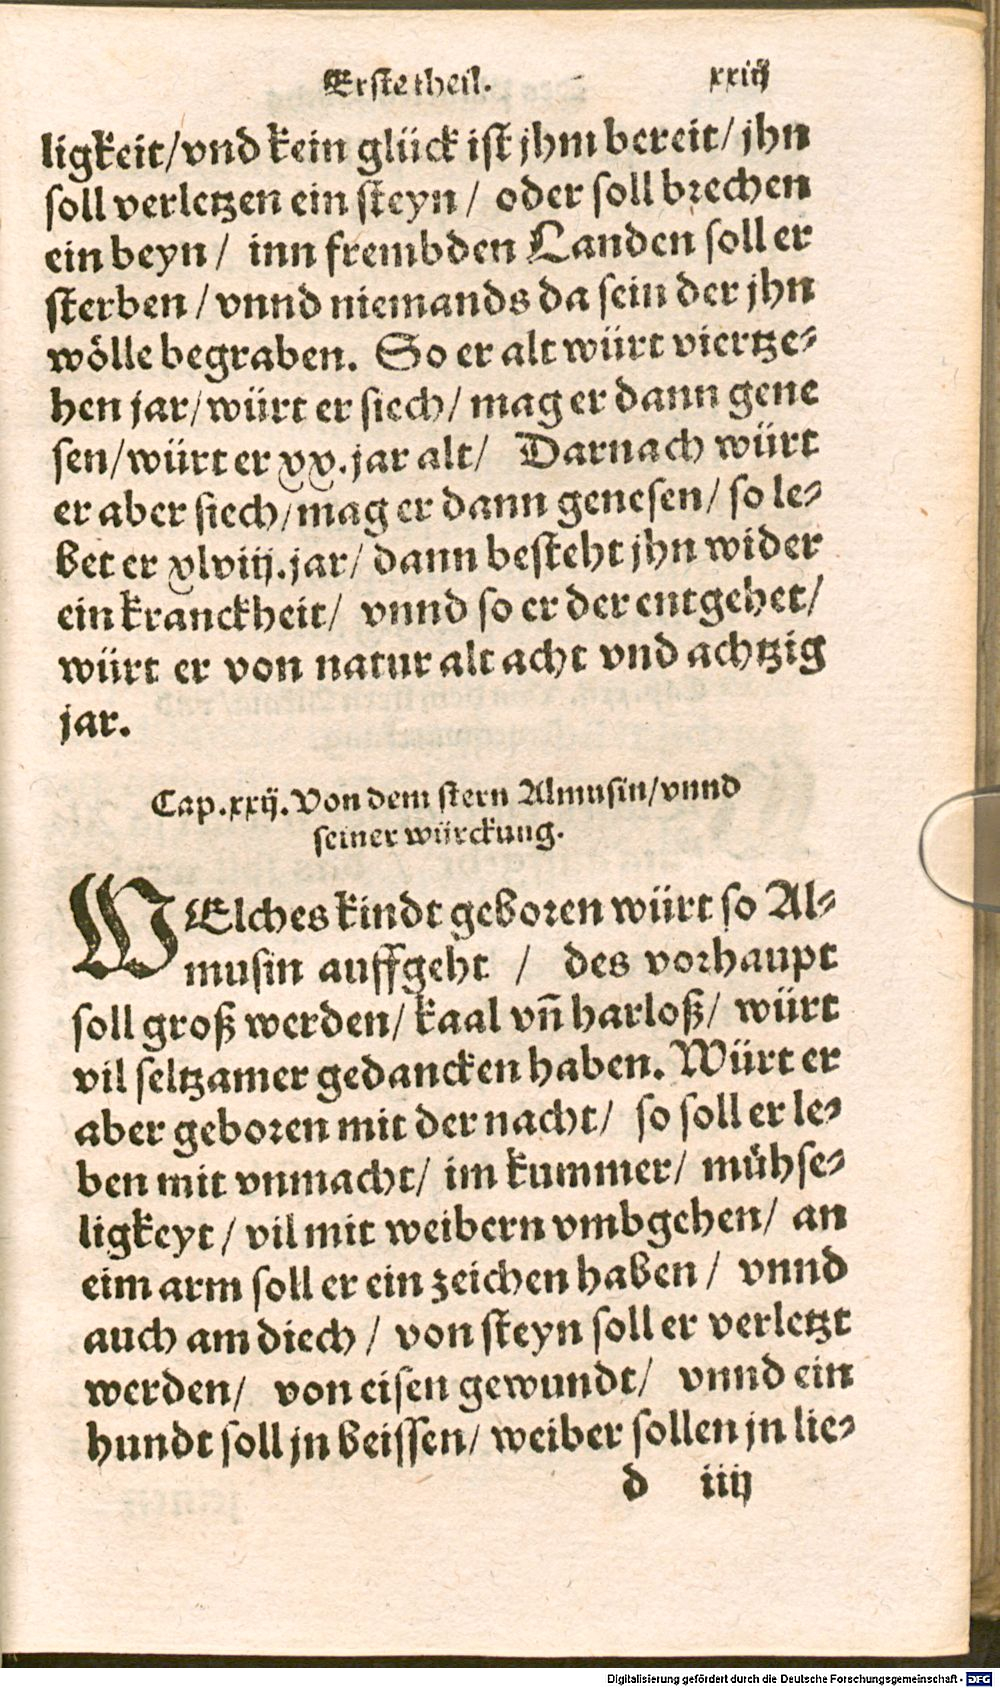 Erste theil. xxiij
ligkeit/vnd kein glück ist jhm bereit/ jhn
soll verletzen ein steyn/ oder soll brechen
ein beyn/ inn frembden Landen soll er
sterben/vnnd niemands da sein der jhn
wölle begraben. So er alt würt viertze-
hen jar/würt er siech/mag er dann gene
sen/würt er xx. jar alt/ Darnach würt
er aber siech/mag er dann genesen/ so le-
bet er xlviij. jar/ dann besteht jhn wider
ein kranckheit/ vnnd so er der entgehet/
würt er von natur alt acht vnd achtzig
jar.
Cap. xxij. Von dem stern Almusin/vnnd
seiner würckung.
WElches kindt geboren würt so Al-
musin auffgeht / des vorhaupt
soll groß werden/ kaal vñ harloß/ würt
vil seltzamer gedancken haben. Würt er
aber geboren mit der nacht/ so soll er le-
ben mit vnmacht/ im kummer/ mühse-
ligkeyt/ vil mit weibern vmbgehen/ an
eim arm soll er ein zeichen haben/ vnnd
auch am diech/ von steyn soll er verletzt
werden/ von eisen gewundt/ vnnd ein
hundt soll jn beissen/ weiber sollen jn lie-
d iiij
Digitalisierung gefördert durch die Deutsche Forschungsgemeinschaft - DFG